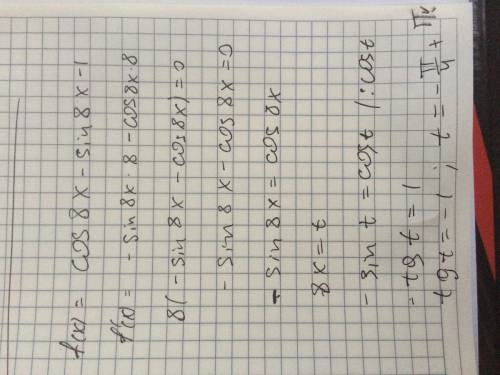 f(x) = cos8x - sin8x - 1
f'(x) = - sin8x · 8 - cos8x · 8
8(- sin8x - cos8x) = 0
- sin8x - cos8x = 0
- sin8x = cos8x
8x = t
- sin t = cos t |: cost
- tgt = 1
tgt = -1 ; t = - π/4 + πn